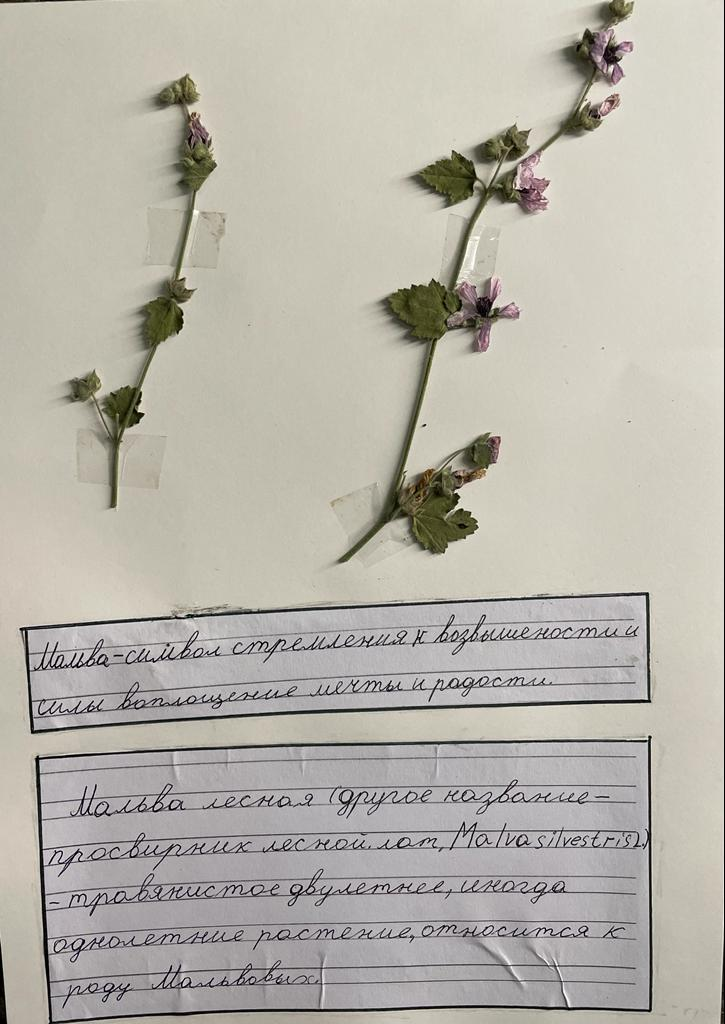 Мальва-символ стремления к возвышености и
силы воплощение мечты и радости.
Мальва лесная (другое название-
просвирник лесной. лат, Malva silvestris L.)
-травянистое двулетнее, иногда
однолетние растение, относится к
роду Мальвовых.